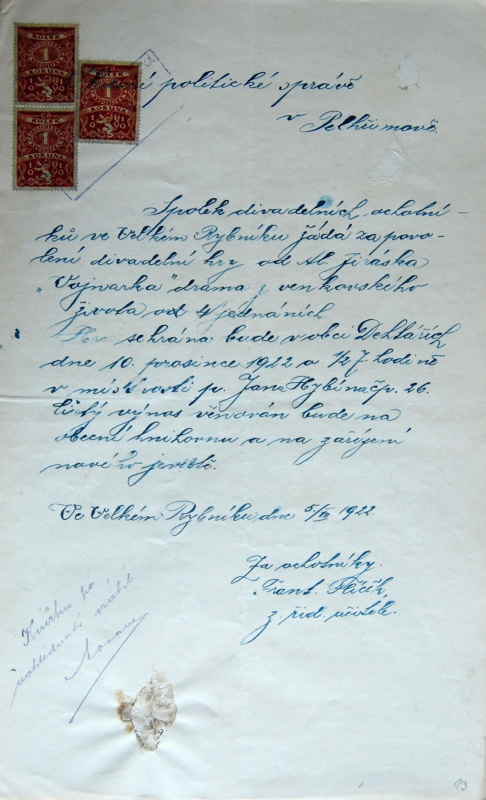 KOLEK
1
KORUNA
1919
KOLEK
1
KORUNA
1919
KOLEK
1
KORUNA
1919
politické správě
v Pelhřimově.
Spolek divadelních ochotní-
ků ve Velkém Rybníku žádá za povo-
lení divadelní hry od Al. Jiráska
„Vojnarka" drama z venkovského
života od 4 jednáních
Hra sehrána bude v obci Dehtářích
dne 10. prosince 1922 o 1/2 7. hodině
v místnosti p. Jana Hybína čp. 26.
Čistý výnos věnován bude na
obecní knihovnu a na zařízení
nového jeviště.
Ve Velkém Rybníku dne 5/XII 1922
Za ochotníky.
Frant.
z. říd. učitele.
Knížku po
nahlédnutí vrátil
13